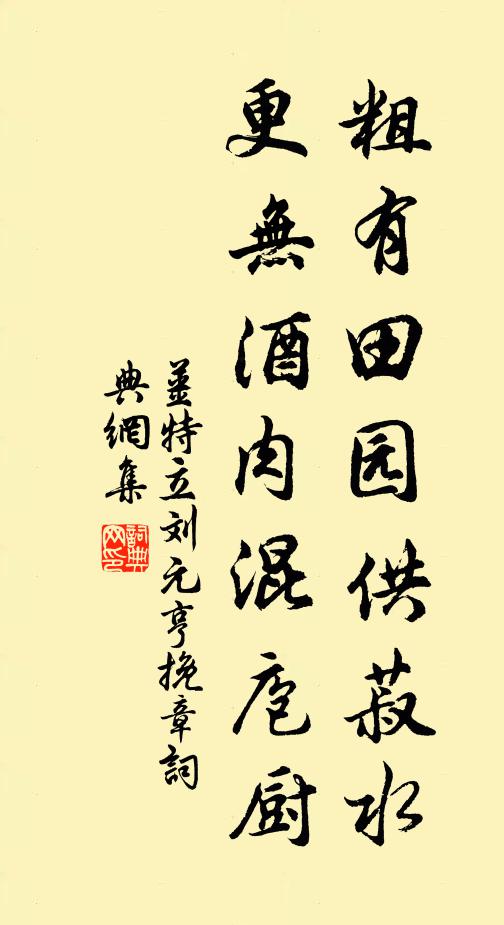 粗有田园供菽水
更無酒肉混庖厨
姜特立刘元亨挽章詞
典網集
詞典網印